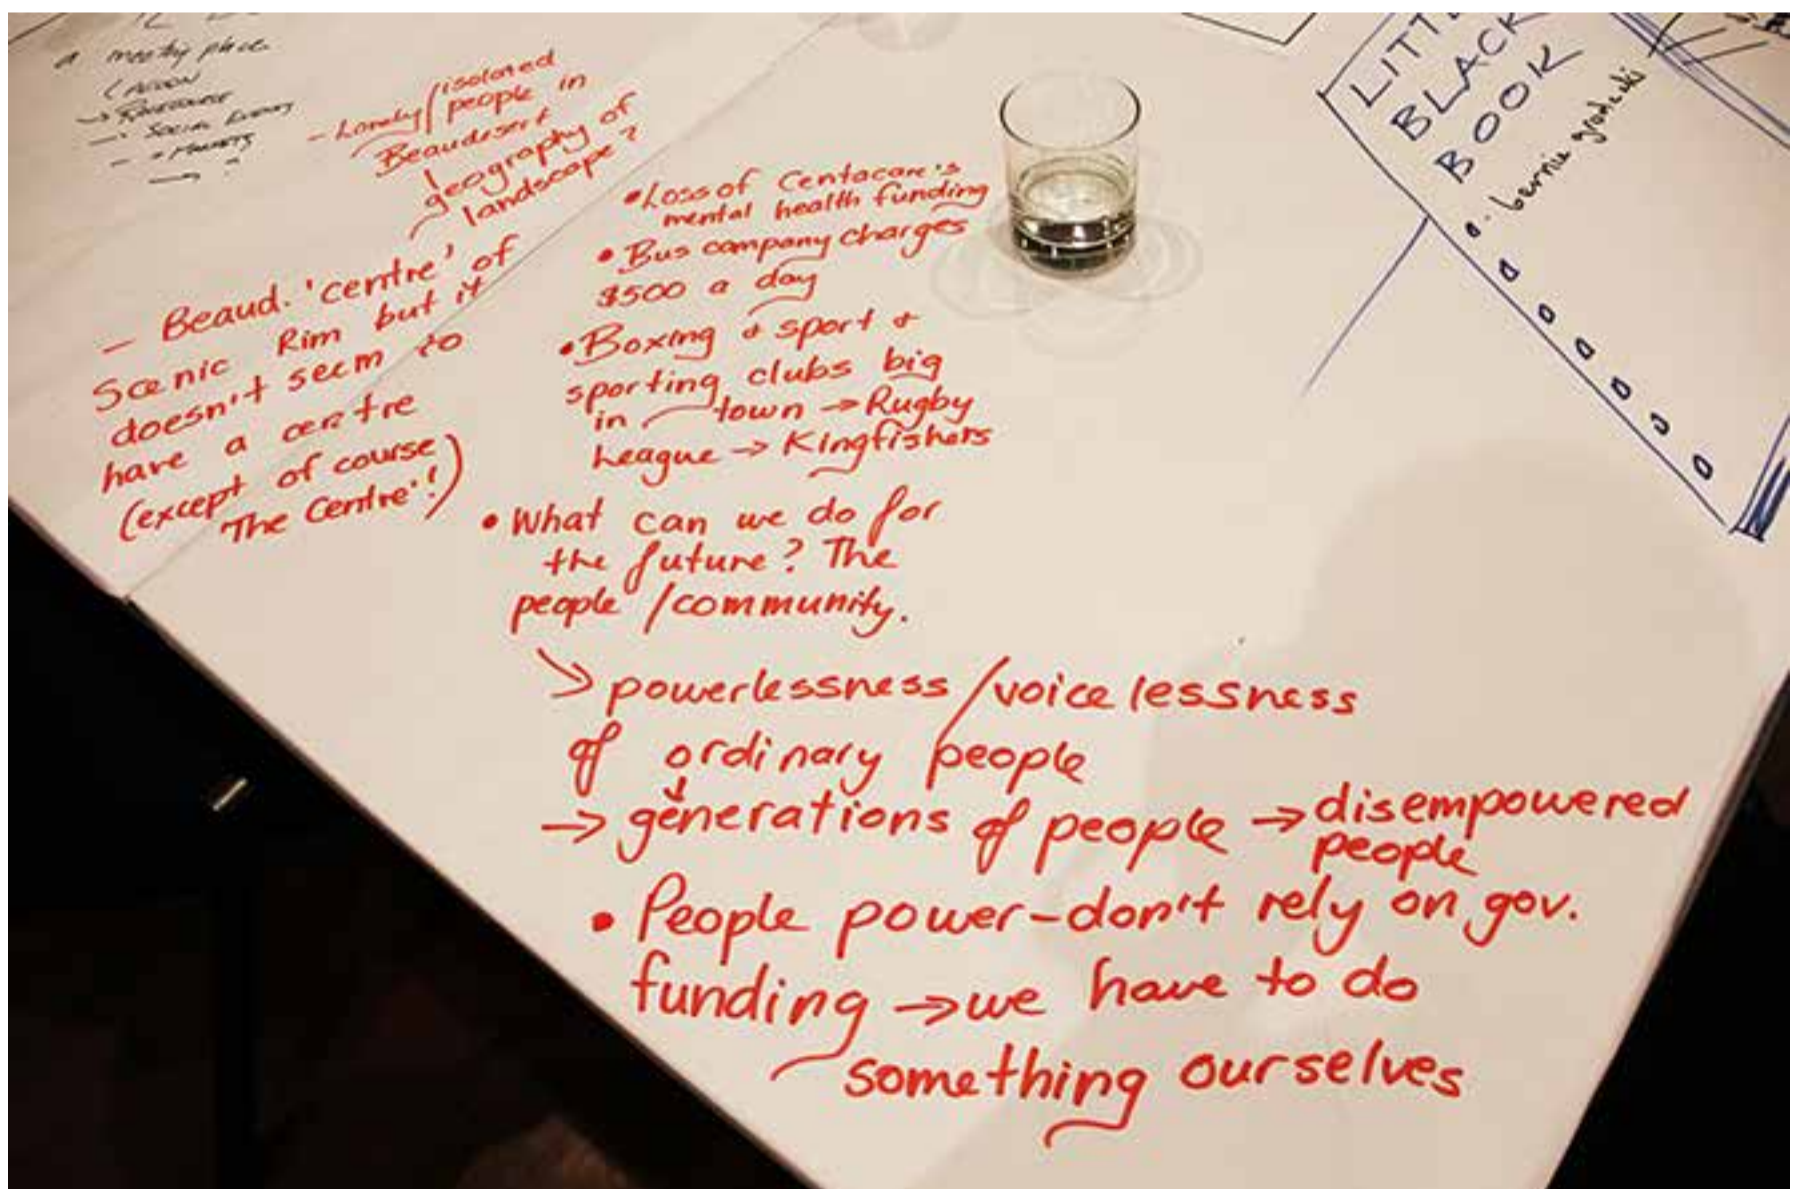 a meeting place
→ Racecourse
→ Social Events
→ Markets
→ ?
– Lonely/isolated
people in
Beaudesert
geography of
landscape?
– Beaud. 'centre' of
Scenic Rim but it
doesn't seem to
have a centre
(except of course
'The Centre'!)
• Loss of Centacare's
mental health funding
• Bus company charges
$500 a day
• Boxing & sport &
sporting clubs big
in town → Rugby
League → Kingfishers
• What can we do for
the future? The
people/community.
→ powerlessness/voicelessness
of ordinary people
→ generations of people → disempowered
people
• People power-don't rely on gov.
funding → we have to do
something ourselves
BLACK
BOOK
bernie